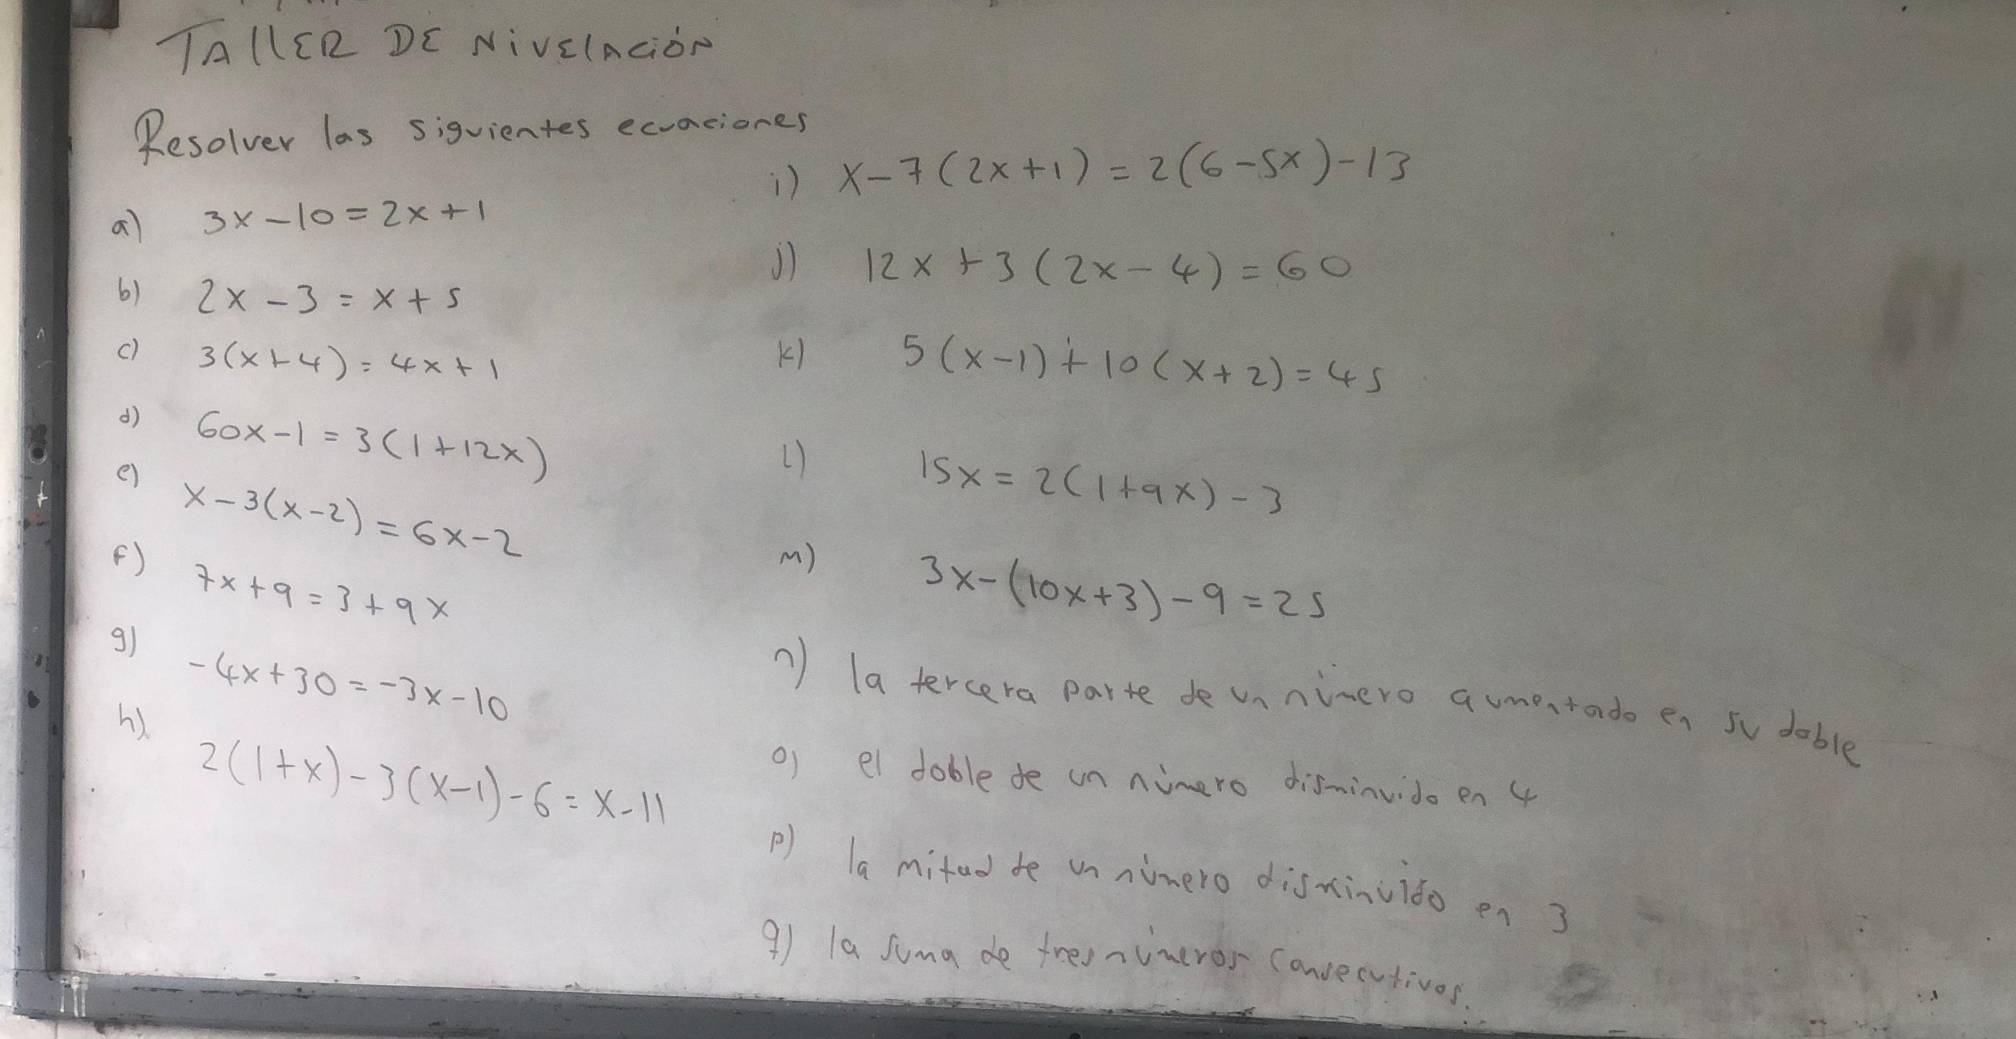 TALLER DE NIVELACIÓN
Resolver las siguientes ecuaciones
a) 3x-10=2x+1
b) 2x-3=x+5
c) 3(x+4)=4x+1
d) 60x-1=3(1+12x)
e) x-3(x-2)=6x-2
f) 7x+9=3+9x
g) -4x+30=-3x-10
h) 2(1+x)-3(x-1)-6=x-11
i) x-7(2x+1)=2(6-5x)-13
j) 12x+3(2x-4)=60
k) 5(x-1)+10(x+2)=45
l) 15x=2(1+9x)-3
m) 3x-(10x+3)-9=25
n) la tercera parte de un número aumentado en su doble
o) el doble de un número disminuido en 4
p) la mitad de un número disminuido en 3
q) la suma de tres números consecutivos.